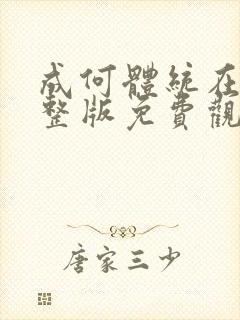 成何體統在
整版免費觀
唐家三少